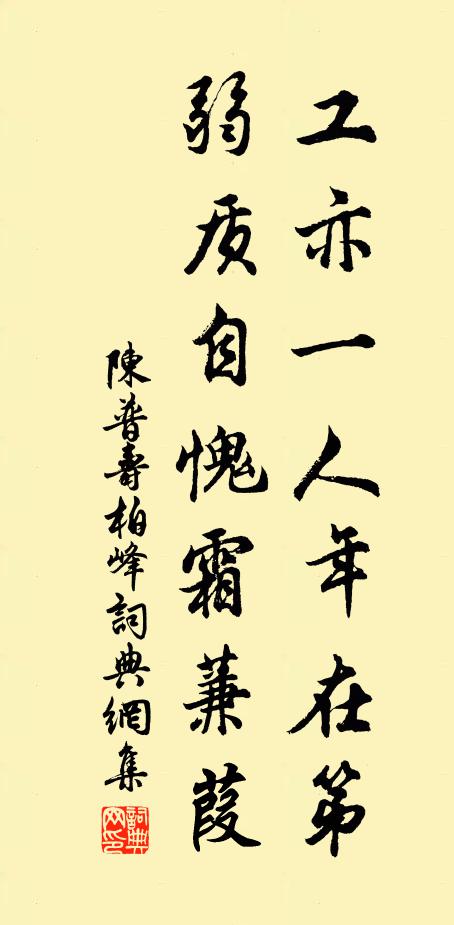 工亦一人年在第
弱质自愧霜蒹葭
陳普壽柏峰詞典網集
詞典
网印